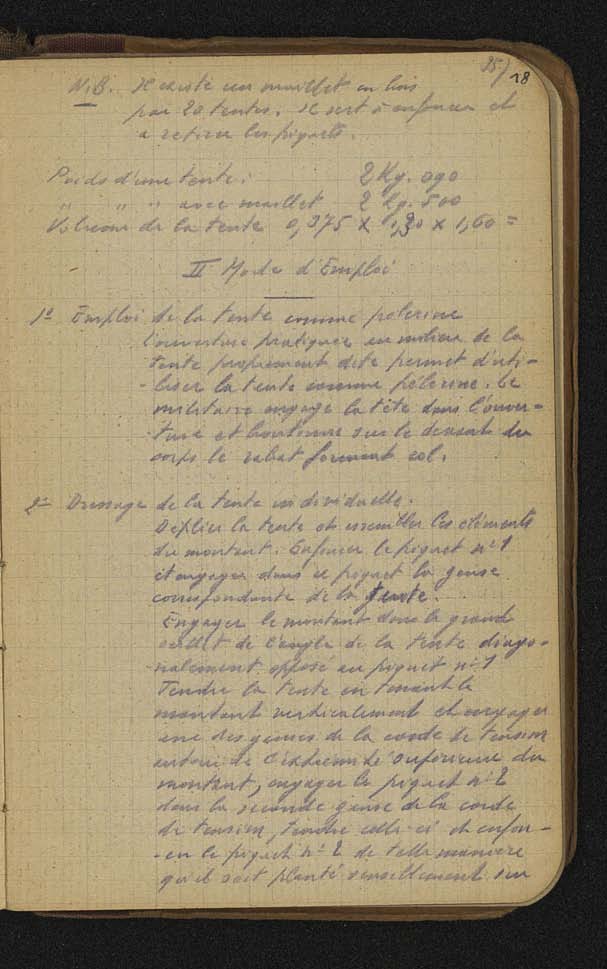 25/ 18
N.B. Il existe un maillet en bois
par 20 tentes. Il sert à enfoncer et
a retirer les piquets.
Poids d'une tente : 2 Kg. 090
" " " avec maillet 2 Kg. 500
Volume de la tente 0,375 x 1,30 x 1,60 =
II Mode d'Emploi
1º Emploi de la tente comme pelerine
l'ouverture pratiquée au milieu de la
tente proprement dite permet d'uti-
-liser la tente comme pèlerine. Le
militaire engage la tête dans l'ouver-
ture et boutonne sur le devant du
corps le rabat formant col.
2º Dressage de la tente individuelle.
Déplier la tente et assembler les éléments
du montant. Enfoncer le piquet nº 1
et engager dans ce piquet la ganse
correspondante de la tente.
Engager le montant dans le grand
oeillet de l'angle de la tente diago-
nalement opposé au piquet nº 1
Tendre la tente en tenant le
montant verticalement et engager
une des ganses de la corde de tension
autour de l'extrémité supérieure du
montant, engager le piquet nº 2
dans la seconde ganse de la corde
de tension, tendre celle-ci et enfon-
-cer le piquet nº 2 de telle manière
qu'il soit planté sensiblement sur